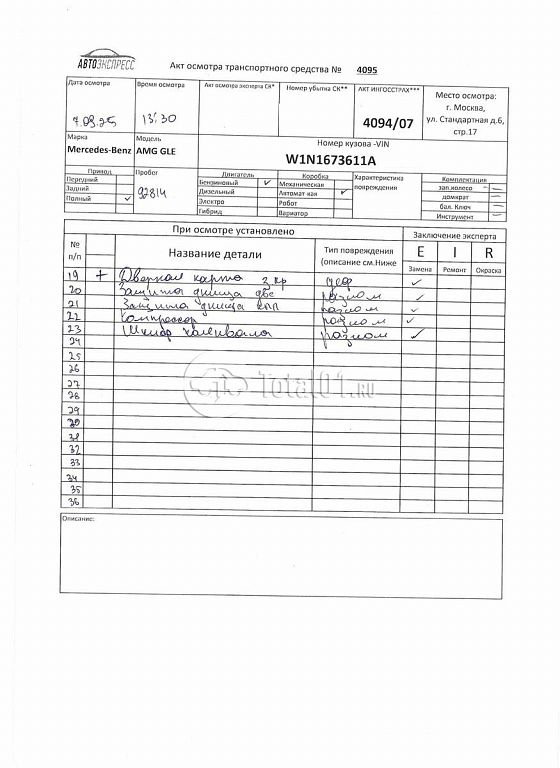 АВТОЭКСПРЕСС
Акт осмотра транспортного средства № 4095
Дата осмотра
7.09.25
Время осмотра
13:30
Акт осмотра эксперта СК*
Номер убытка СК**
АКТ ИНГОССТРАХ***
4094/07
Место осмотра:
г. Москва,
ул. Стандартная д.6,
стр.17
Марка
Mercedes-Benz
Модель
AMG GLE
Номер кузова -VIN
W1N1673611A
Привод
Передний
Задний
Полный ✓
Пробег
92814
Двигатель
Бензиновый ✓
Дизельный
Электро
Гибрид
Коробка
Механическая
Автомат кая ✓
Робот
Вариатор
Характеристика
повреждения
Комплектация
зап.колесо —
домкрат —
бал. Ключ —
Инструмент —
При осмотре установлено
Заключение эксперта
№
п/п
Название детали
Тип повреждения
(описание см.Ниже
E I R
Замена Ремонт Окраска
19 + Дверная карта з пр деф ✓
20 Защита днища двс разлом ✓
21 Защита днища кпп разлом ✓
22 Компрессор разлом ✓
23 Шкив коленвала разлом ✓
24
25
26
27
28
29
30
31
32
33
34
35
36
Total01.RU
Описание: